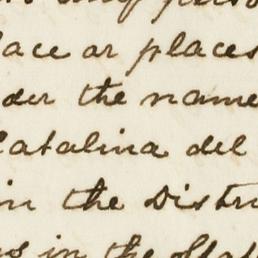 lace or places
der the name
Catalina del
in the Distri
in the